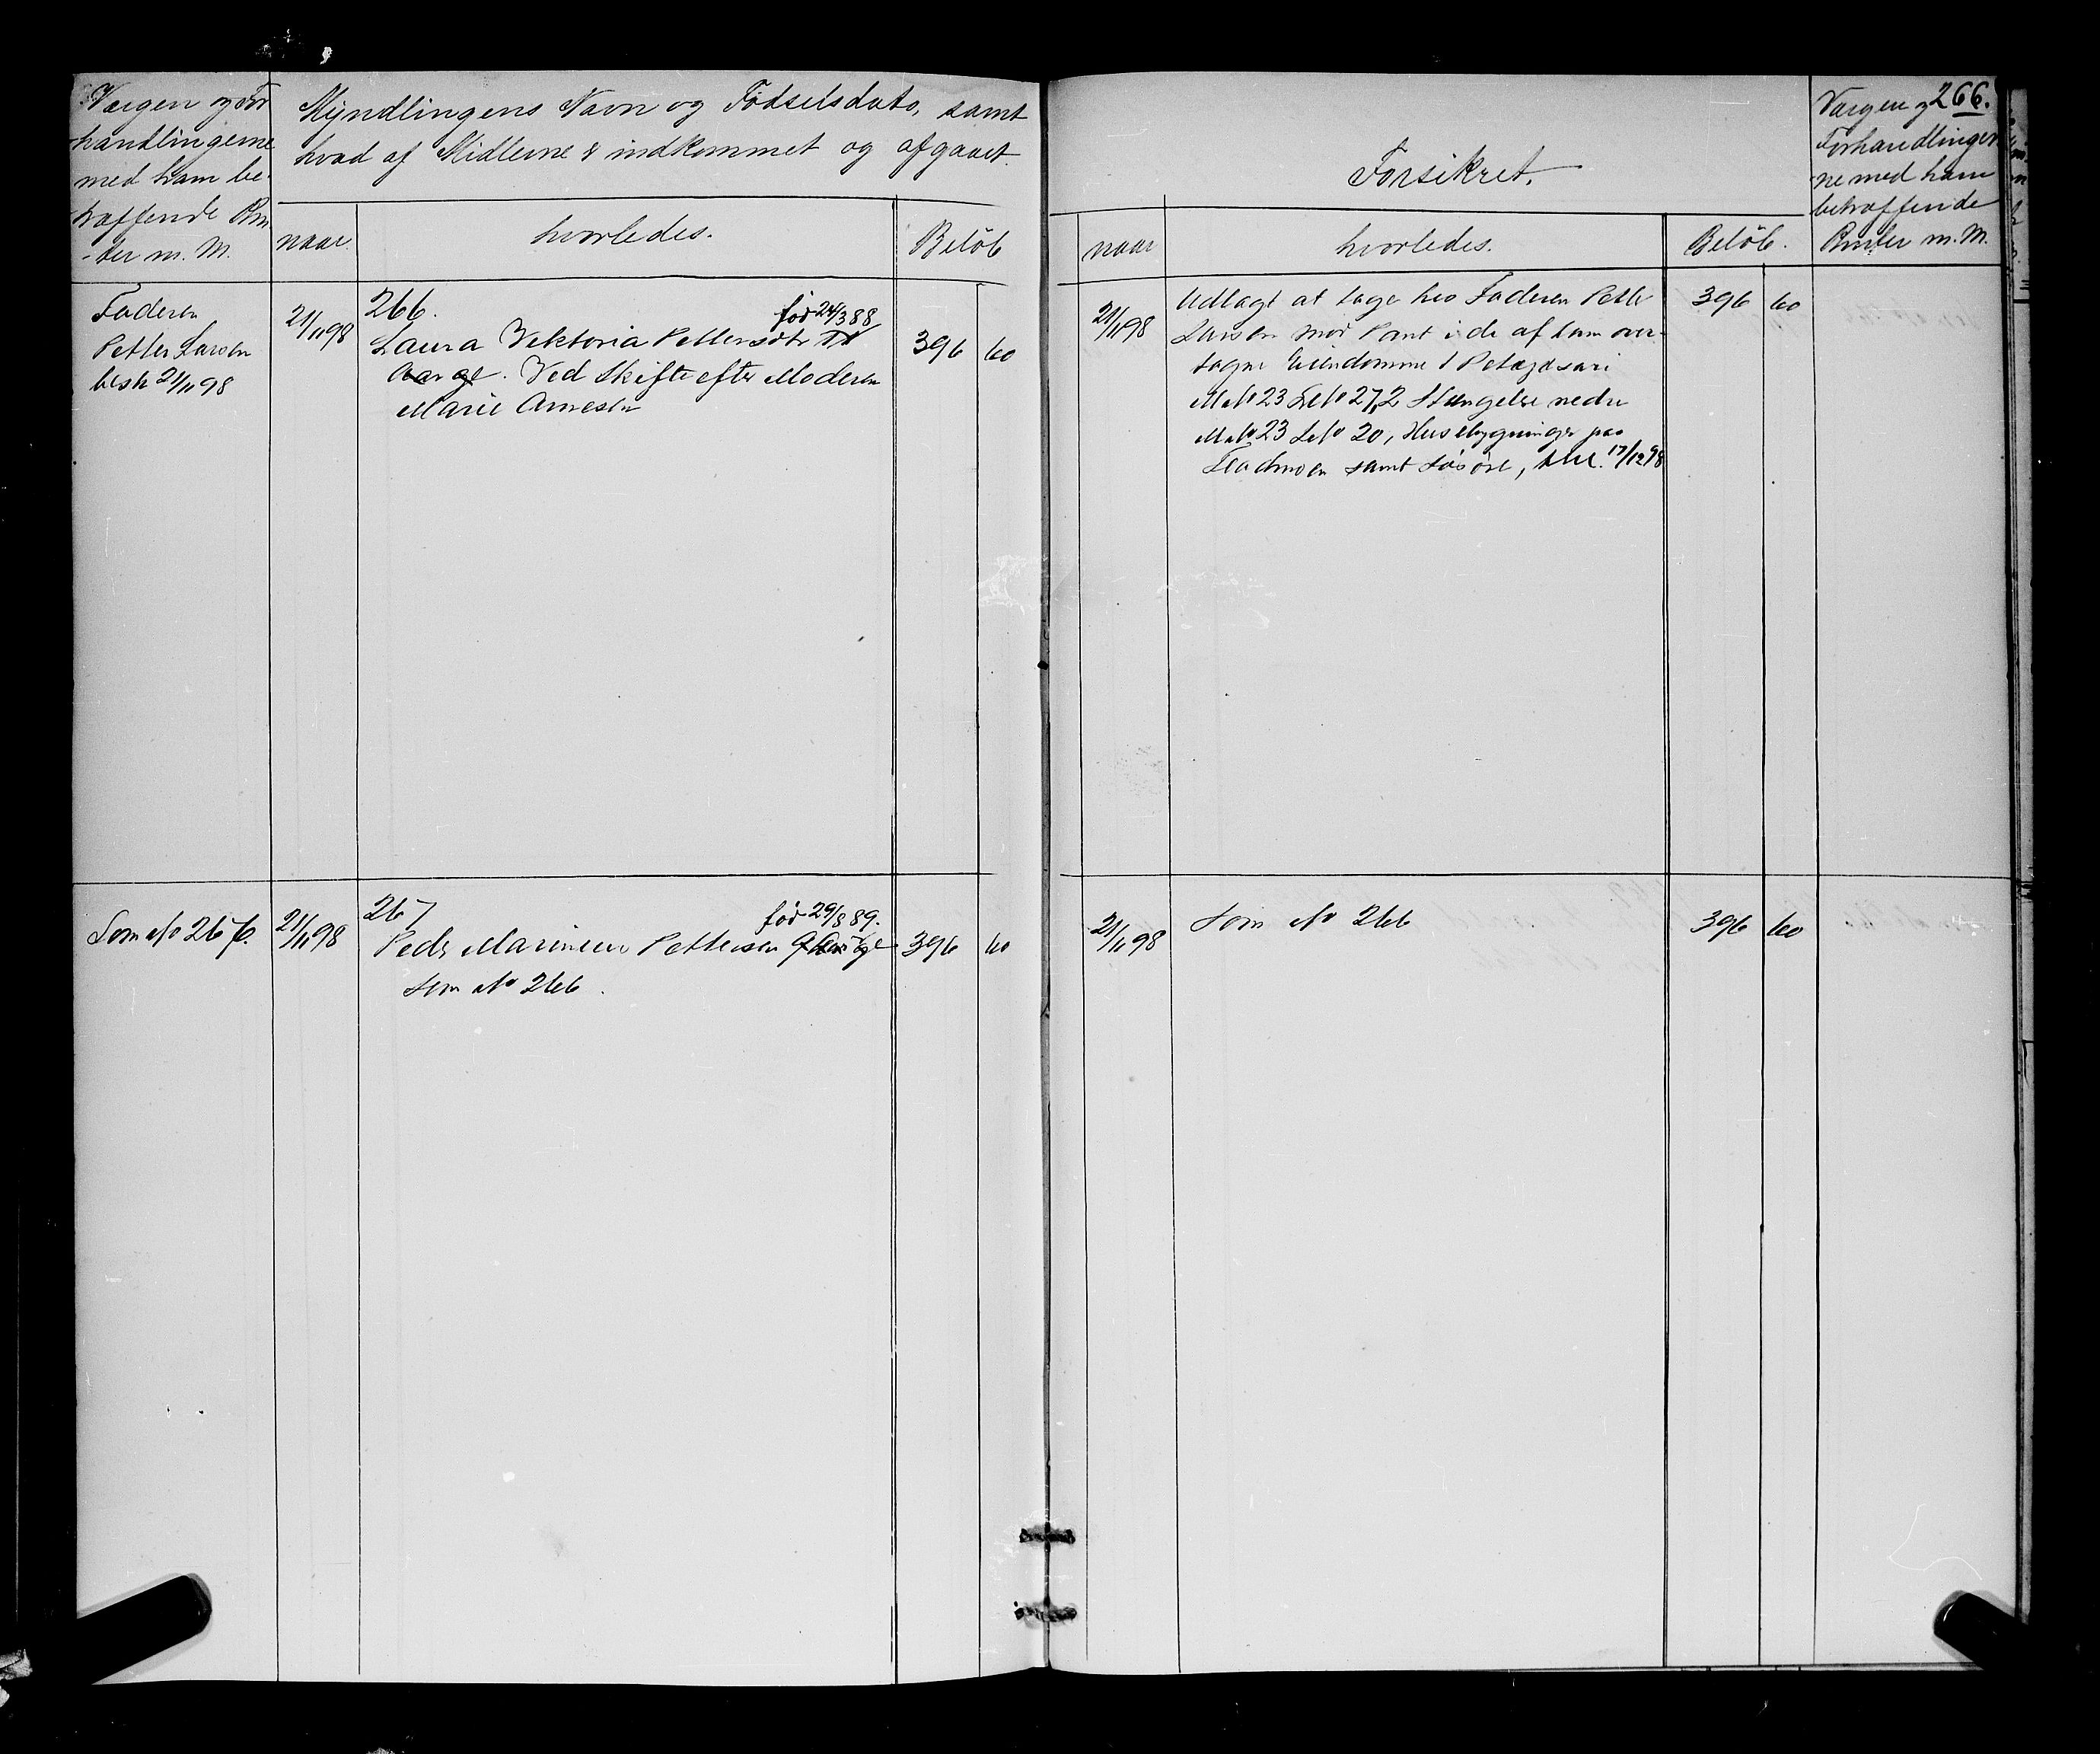 Værgen og For
handlingerne
med ham be-
træffende Ren
-ter m. M.
Myndlingens Navn og Fødselsdato, samt
hvad af Midlerne er indkommet og afgaaet.
naar.
hvorledes.
Beløb
Faderen
Petter Larsen
besk 21/11 98
21/11 98
266.
fød 24/3 88
Laura Viktoria Pettersdtr
Aar gl. Ved Skifte efter Moderen
Marie Arnesdr
396 60
Som No 266.
21/11 98
267
fød 29/8 89.
Peder Marinius Pettersen 9 Aar gl
som No 266.
396 60
266.
Forsikret.
Værgen og
Forhandlinger
ne med ham
betræffende
Renter m. M.
naar
hvorledes.
Beløb.
21/11 98
Udlagt at tage hos Faderen Petter
Larsen mod Pant i de af ham over-
tagne Eiendomme
M No 23 L No 27, 2 Stængelse nedre
M No 23 L No 20, Husebygninger paa
samt Løsøre, 17/12 98
396 60
21/11 98
Som No 266
396 60